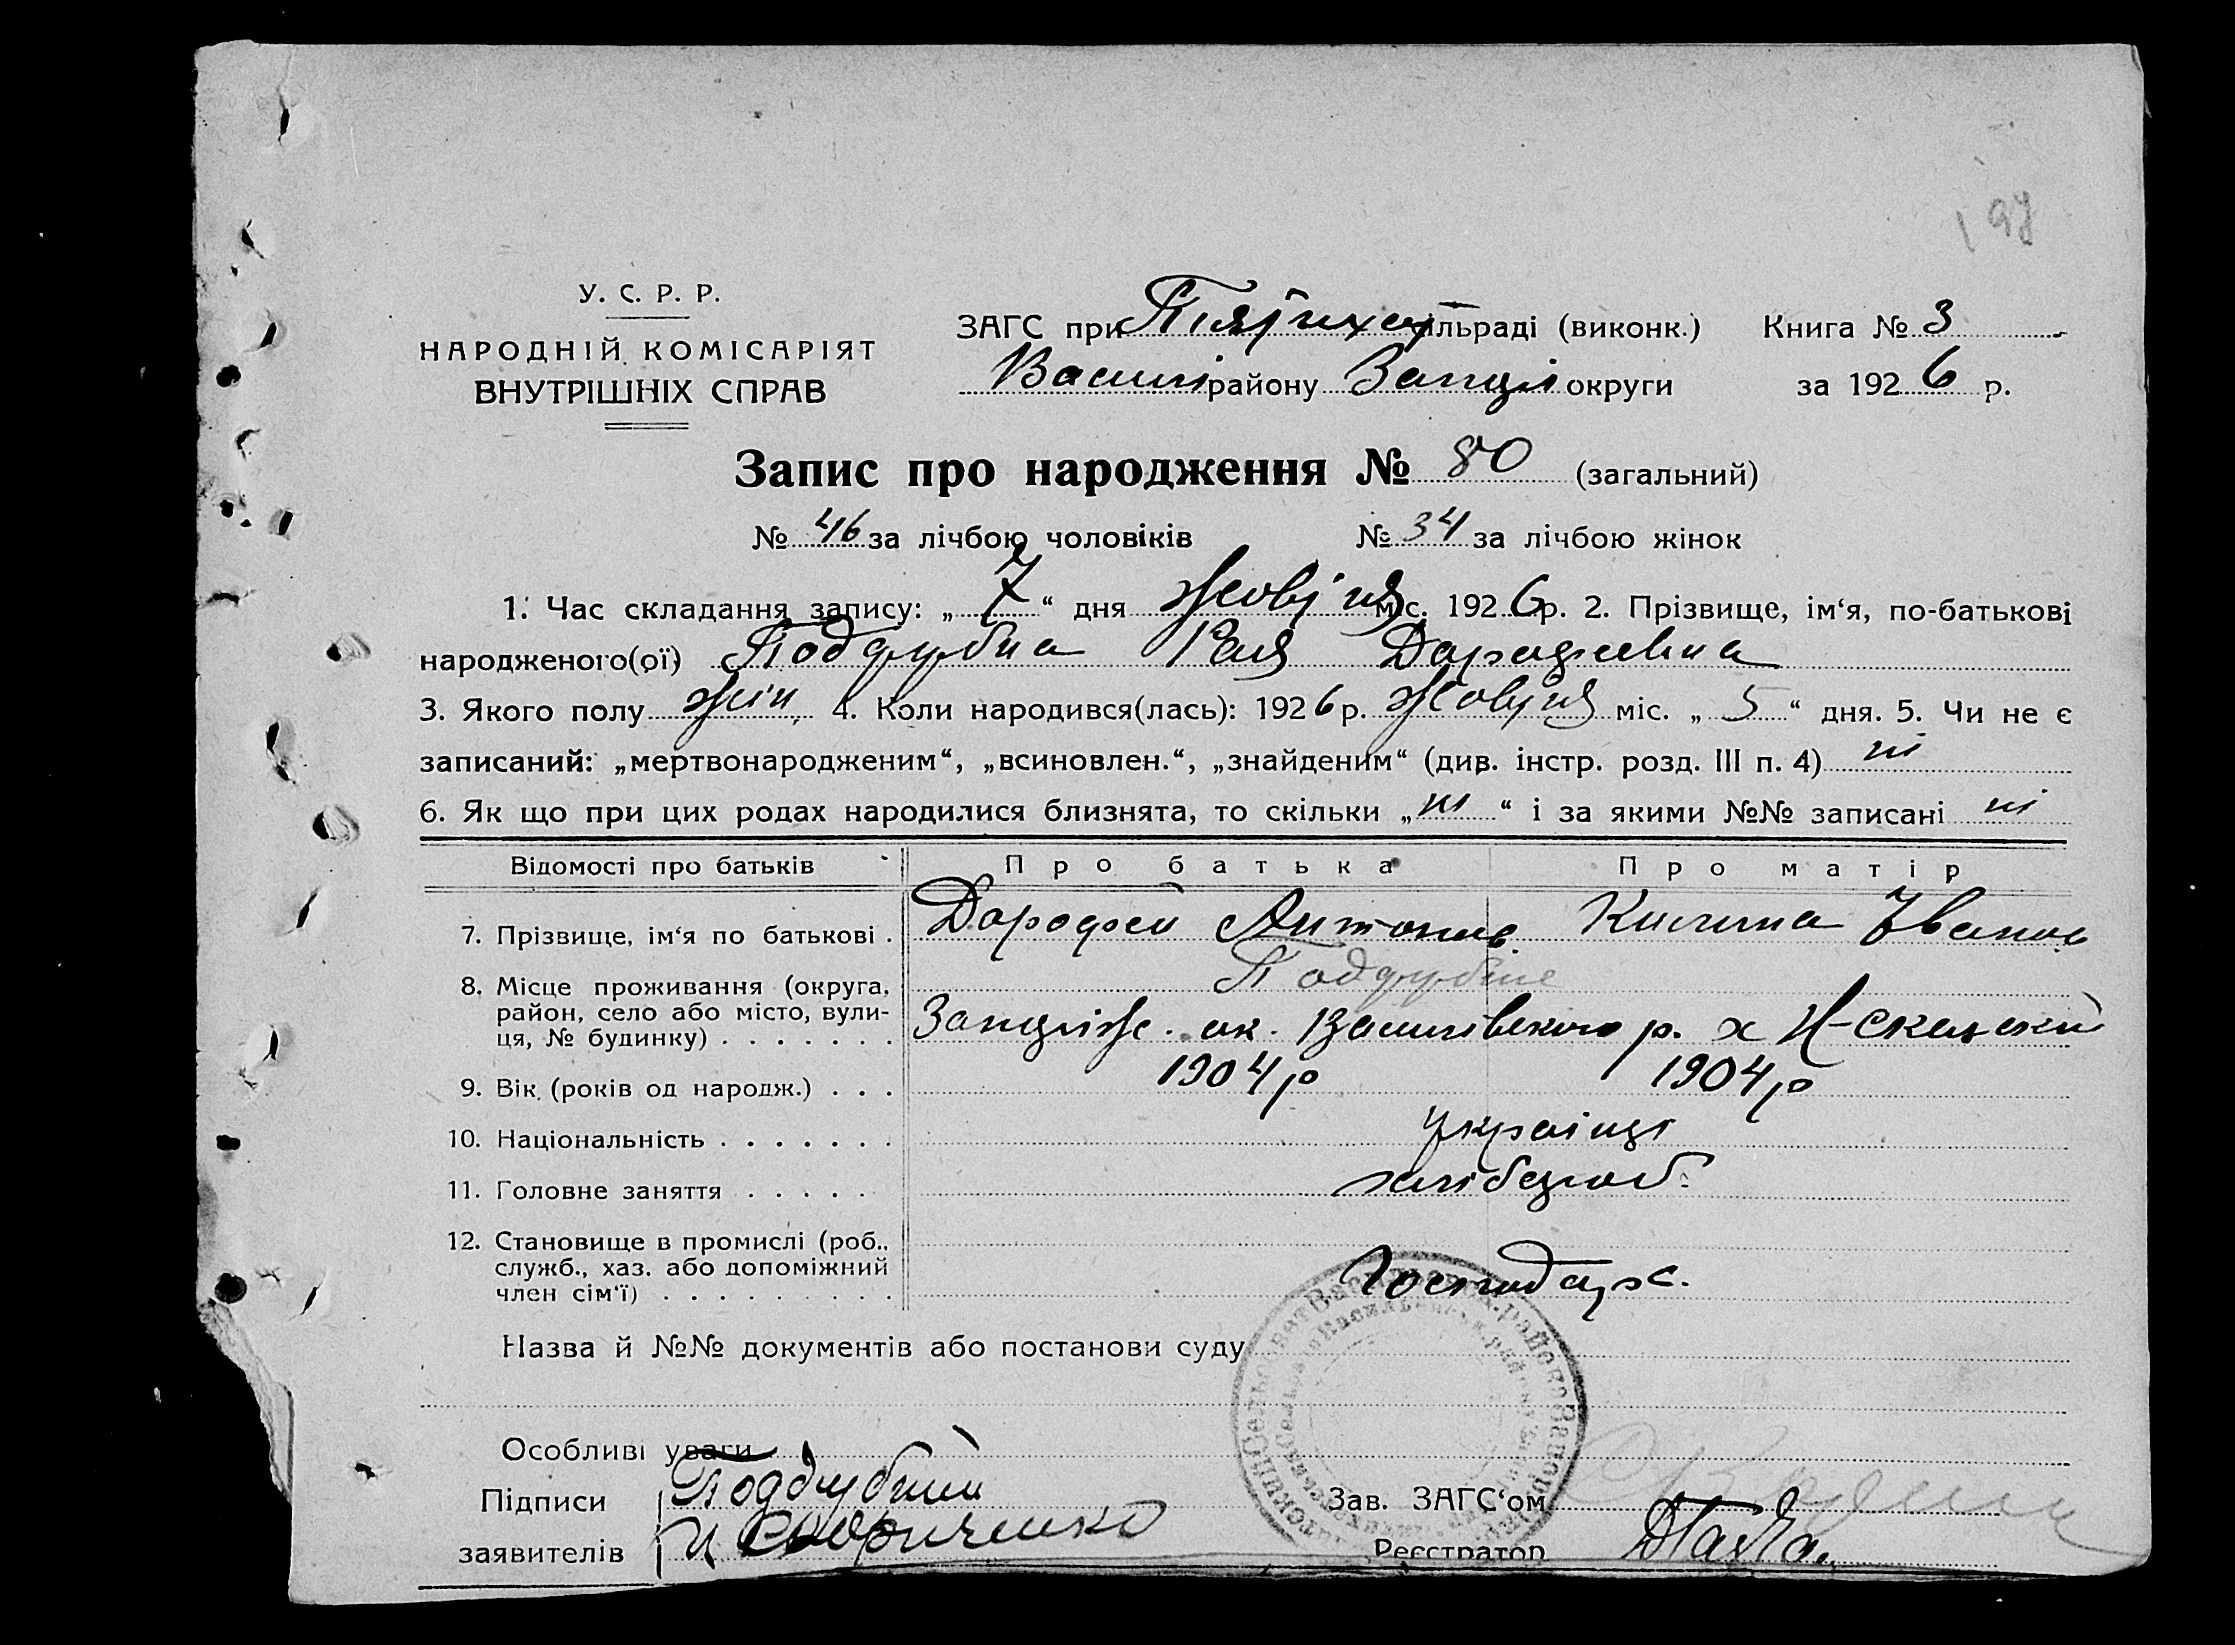 197
У. С. Р. Р.
НАРОДНІЙ КОМІСАРІЯТ
ВНУТРІШНІХ СПРАВ
ЗАГС при Пятихат сільраді (виконк.) Книга № 3
Василі району Запоріз округи за 1926 р.
Запис про народження № 80 (загальний)
№ 46 за лічбою чоловіків № 34 за лічбою жінок
1. Час складання запису: „ 7 “ дня Жовтня міс. 1926 р. 2. Прізвище, ім‘я, по-батькові
народженого(ої) Поддубна Рая Дарофеевна
3. Якого полу жін. 4. Коли народився(лась): 1926 р. Жовтня міс. „ 5 “ дня. 5. Чи не є
записаний: „мертвонародженим“, „всиновлен.“, „знайденим“ (див. інстр. розд. III п. 4) ні
6. Як що при цих родах народилися близнята, то скільки „ ні “ і за якими №№ записані ні
Відомості про батьків Про батька Про матір
7. Прізвище, ім‘я по батькові . Дорофей Антонів. Килина Іванов
Поддубне
8. Місце проживання (округа, район, село або місто, вулиця, № будинку) . . . . . . . Запоріж. ок. Василівського р. х
9. Вік (років од народж.) . . . 1904 р 1904 р
10. Національність . . . . . . . українці
11. Головне заняття . . . . . хлібороб.
12. Становище в промислі (роб., служб., хаз. або допоміжний член сім‘ї) . . . . . . . . . Господарх.
Назва й №№ документів або постанови суду
Особливі уваги
Підписи Поддубний
заявителів И
Зав. ЗАГС‘ом
Реєстратор